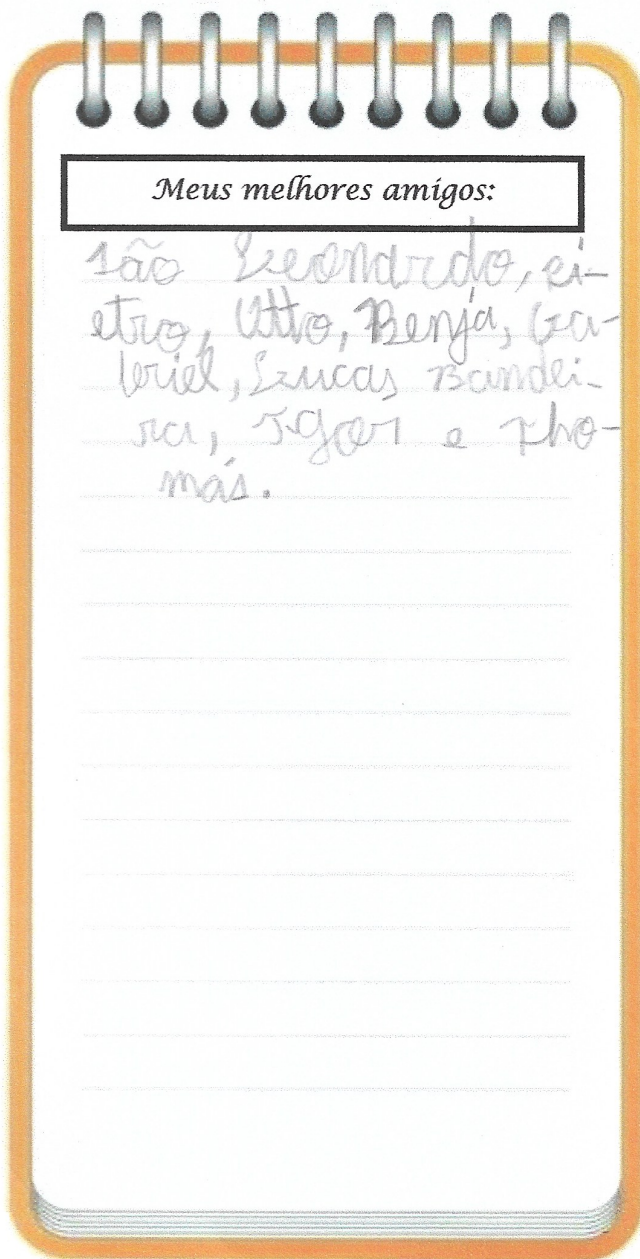 Meus melhores amigos:
São Leonardo, ei-
etro, Otto, Benja, Ga-
briel, Lucas Bandei-
ra, Igor e Tho-
más.